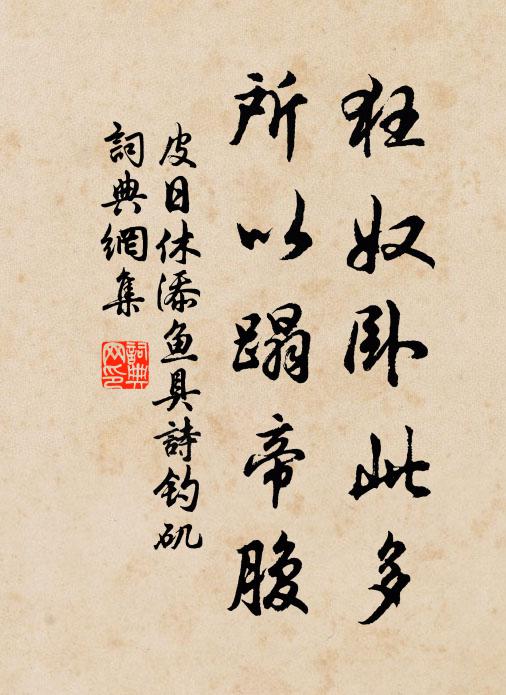 狂奴卧此多
所以蹋帝腹
皮日休添鱼具詩钓矶
詞典網集
詞典网印